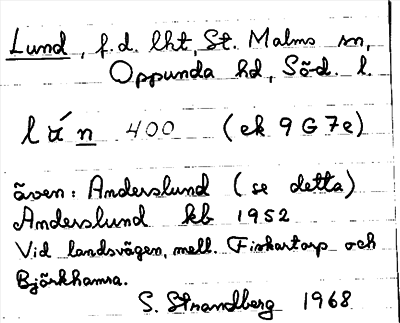 Lund, f.d. lht, St. Malms sn,
Oppunda hd, Söd. l.
lún 400 (ek 9 G 7e)
även: Anderslund (se detta)
Anderslund kb 1952
Vid landsvägen, mell. Fiskartorp och
Björkhamra.
S. Strandberg 1968